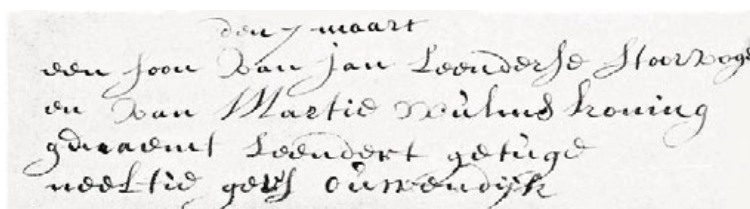 den 7 maart
een soon van jan Leenderse starvoge
en van Martie wulms koning
genaemt Leendert getuge
neeltie ouwendijk